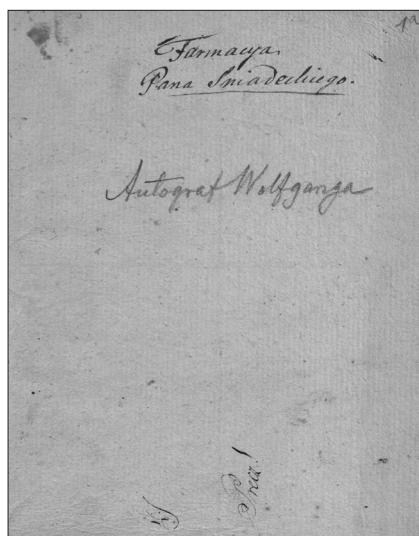 Farmacya
Pana Sniadeckiego.
Autograf Wolfganga
Precz!